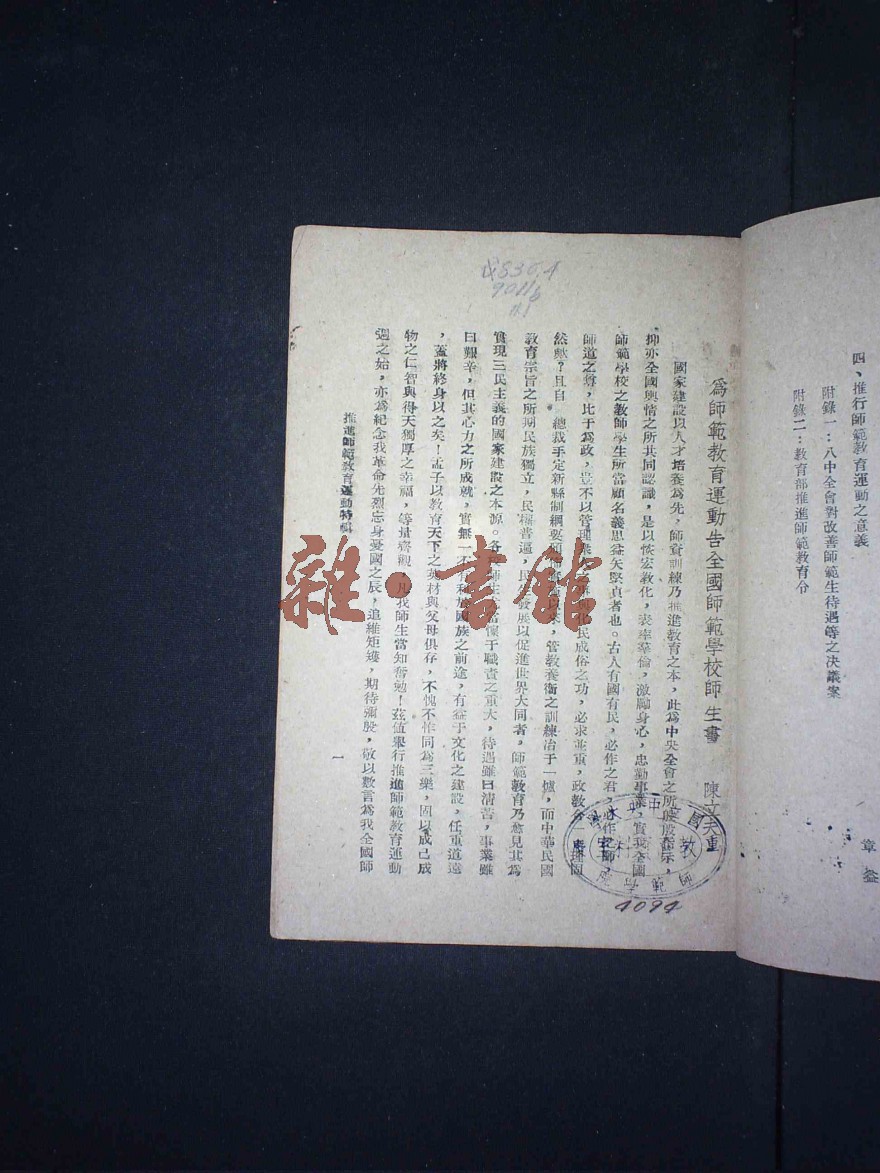 四、推行師範教育運動之意義
章益
附錄一：八中全會對改善師範生待遇等之決議案
附錄二：教育部推進師範教育令
為師範教育運動告全國師範學校師生書
陳立夫
國家建設以人才培養為先，師資訓練乃推進教育之本，此為中央全會之所
抑亦全國輿情之所共同認識，是以恢宏教化，表率羣倫，激勵身心，忠勤事業，實我全國
師範學校之教師學生所當顧名義思益矢堅貞者也。古人有國有民，必作之君，必作之師，
師道之尊，比于為政，豈不以管理
化民成俗之功，必求並重，政教合一
然歟？且自　總裁手定新縣制綱要
以來，管教養衞之訓練冶于一爐，而中華民國
教育宗旨之所期民族獨立，民權普遍，民
發展以促進世界大同者，師範教育乃愈見其為
實現三民主義的國家建設之本源。各
師生
懍于職責之重大，待遇雖曰清苦，事業雖
曰艱辛，但其心力之所成就，實無一不有利於國族之前途，有益于文化之建設，任重道遠
，蓋將終身以之矣！孟子以教育天下之英材與父母俱存，不愧不怍同為三樂，固以成己成
物之仁智與得天獨厚之幸福，等量齊觀，凡我師生當知奮勉！茲值舉行推進師範教育運動
週之始，亦為紀念我革命先烈忘身憂國之辰，追維矩矱，期待彌殷，敬以數言為我全國師
推進師範教育運動特輯
一
4094
雜·書館